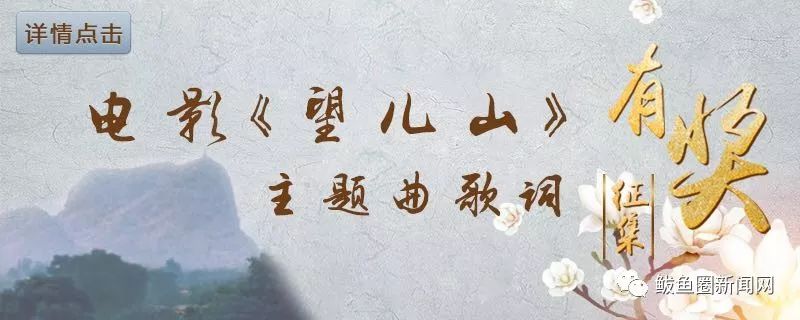 详情点击
电影《望儿山》
主题曲歌词
有奖
征集
鲅鱼圈新闻网